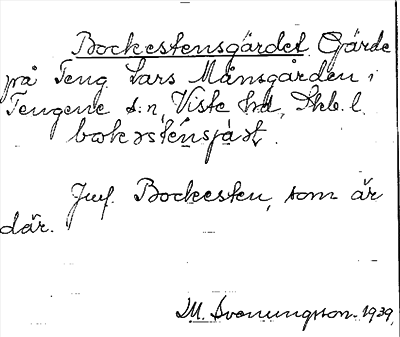 Bockestensgärdet Gärde
på Teng Lars Månsgården i
Tengene s:n, Viste hd, Skb. l.
bokəsténsjæt.
Jmf. Bockesten, som är
där.
M. Svenungsson 1939.